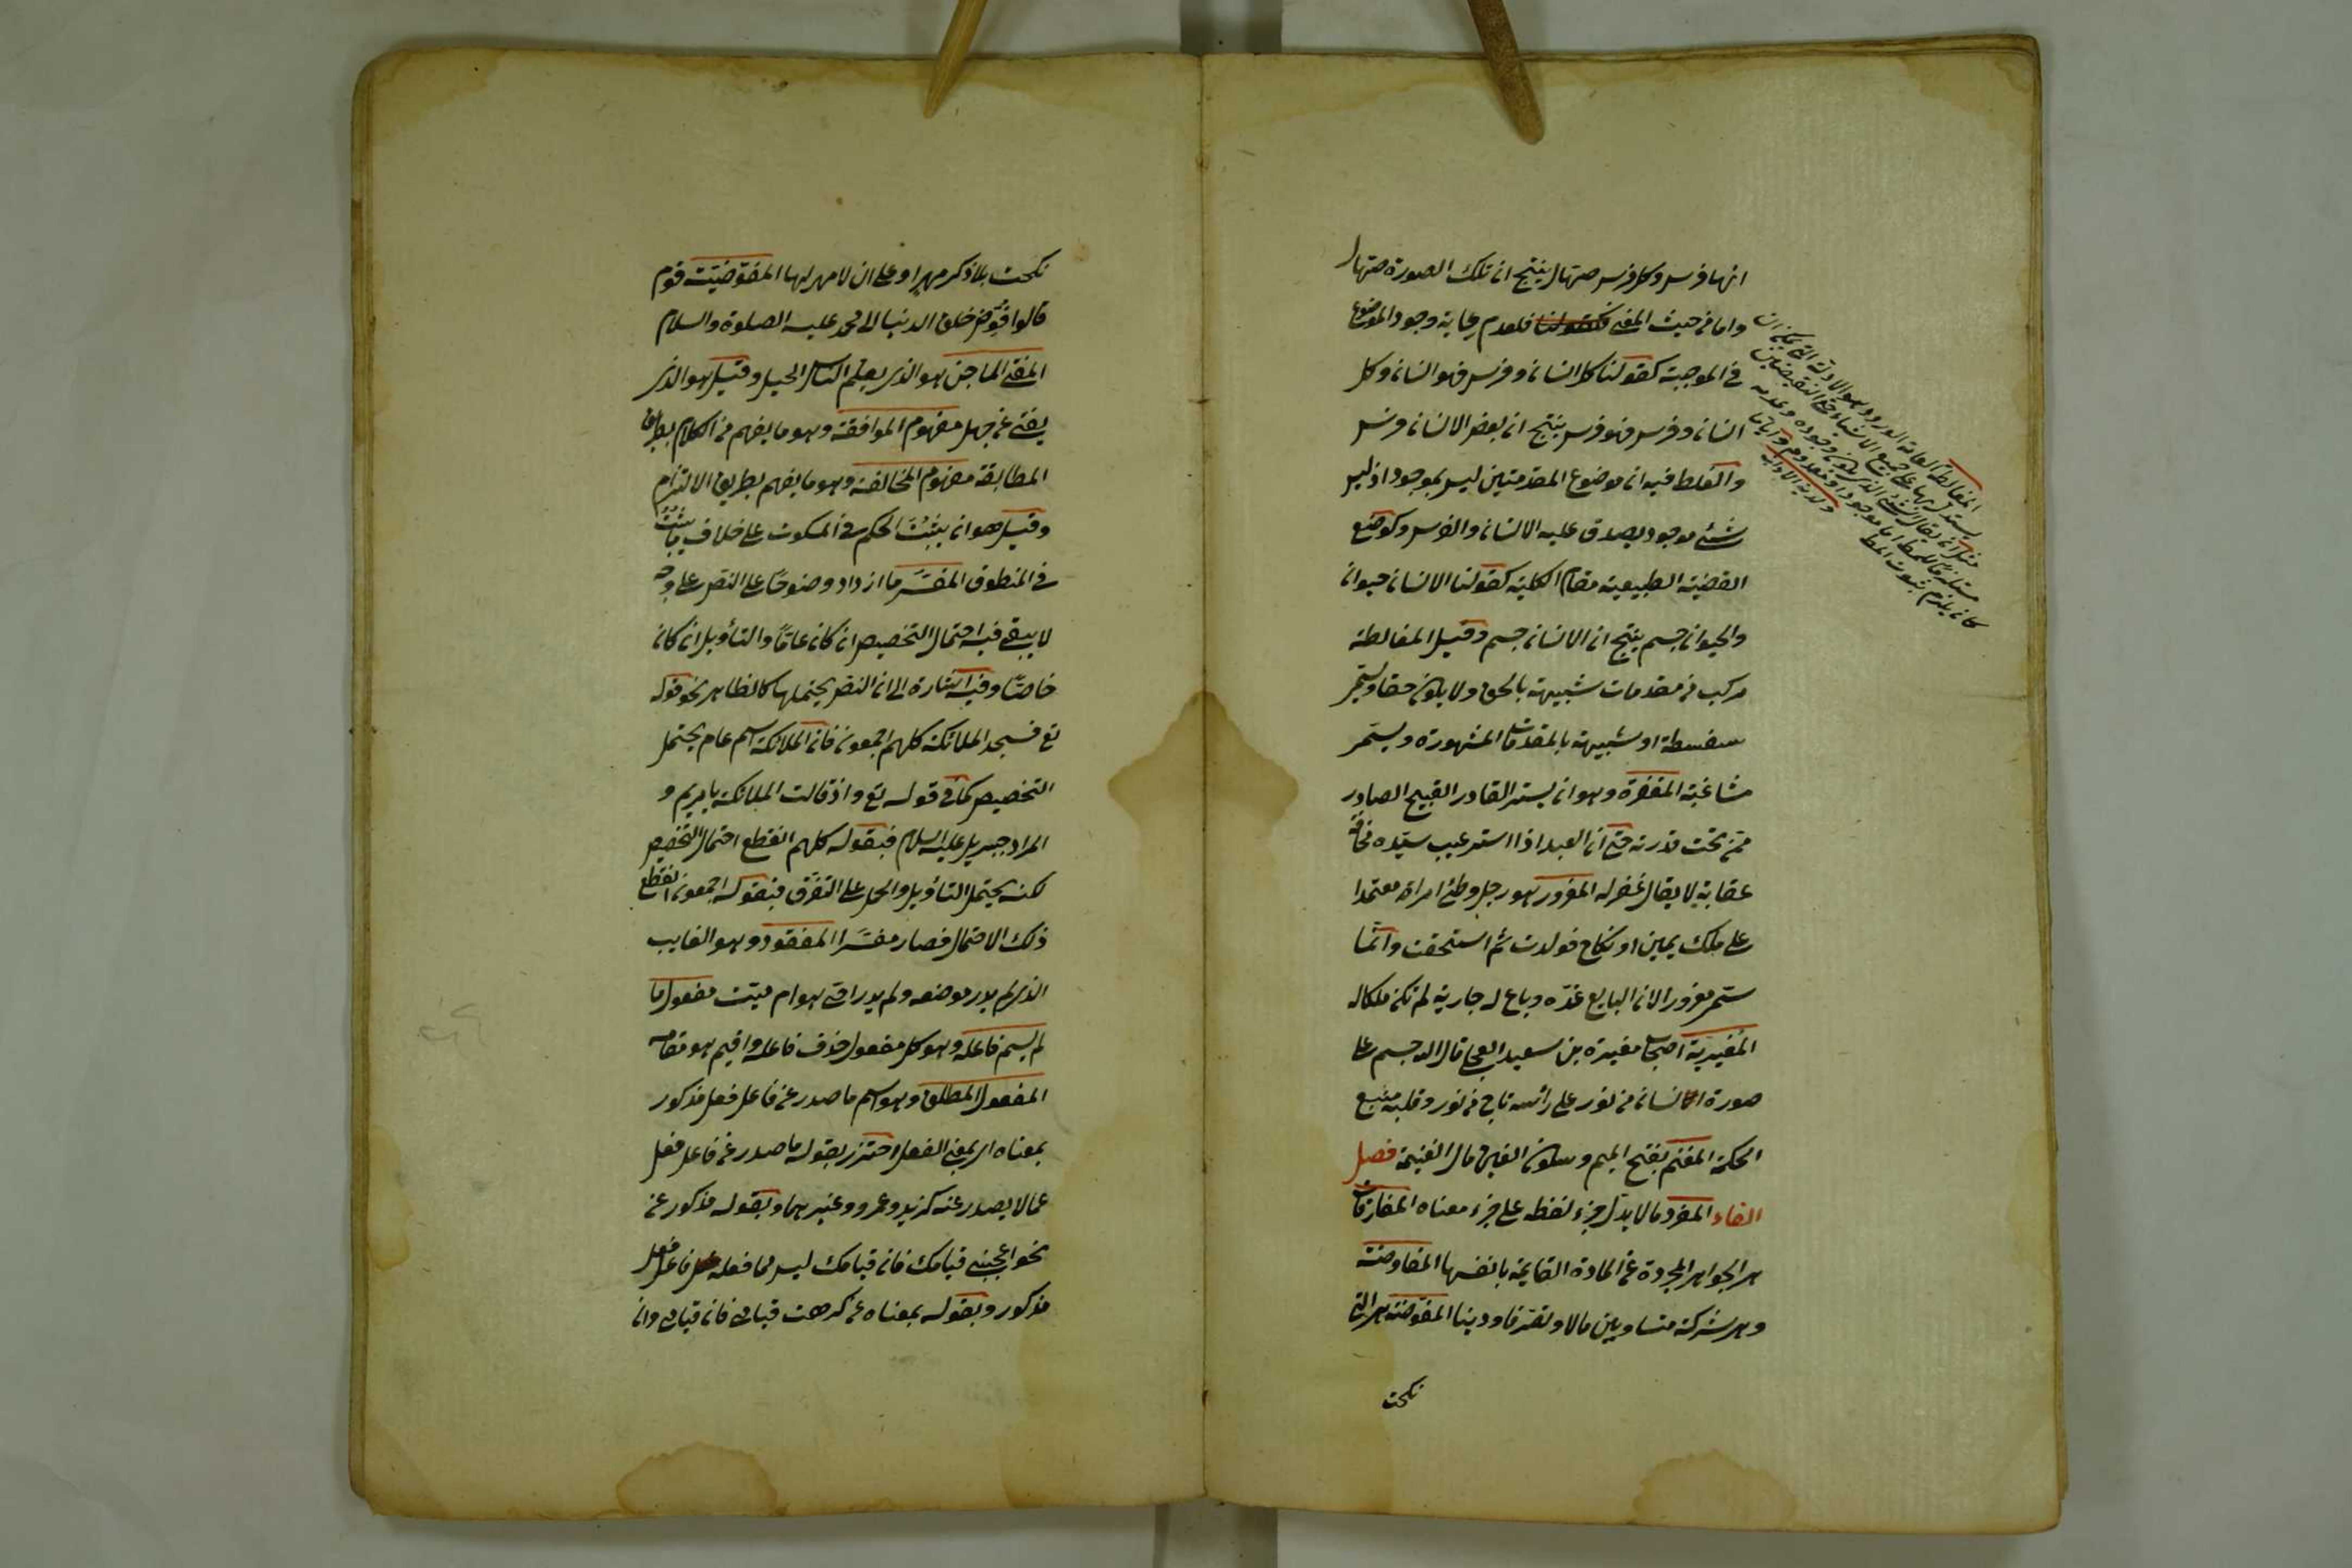 انها فرس وكل فرس صهال ينتج ان تلك الصورة صهال
واما من حيث المعنى فلعدم رعاية وجود الموضوع
في الموجبة كقولنا كل انسان وفرس فهو انسان وكل
انسان وفرس فهو فرس ينتج ان بعض الانسان فرس
والغلط فيه ان موضوع المقدمتين ليس بموجود اذ ليس
شئ موجود يصدق عليه الانسان والفرس وكوضع
القضية الطبيعية مقام الكلية كقولنا الانسان حيوان
والحيوان جسم ينتج ان الانسان جسم وقيل المغالطة
مركب من مقدمات شبيهة بالحق ولا يكون حقا ويسمى
سفسطة او شبيهة بالمقدمات المشهورة ويسمى
مشاغبة المغفرة وهو ان يستر القادر القبيح الصادر
ممن تحت قدرته حتى ان العبد اذا استر عيب سيده مخافة
عقابه لا يقال غفر له المغرور هو رجل وطئ امراة معتمدا
على ملك يمين او نكاح فولدت ثم استحقت وانما
سمى مغرورا لان البايع غره وباع له جارية لم تكن ملكا له
المغيرية اصحاب مغيرة بن سعيد العجلى قال الله جسم على
صورة انسان من نور على رأسه تاج من نور وقلبه منبع
الحكمة المغنم بفتح الميم وسكون الغين مال الغنيمة فصل
الفاء المفرد ما لا يدل جزء لفظه على جزء معناه المفارقات
هى الجواهر المجردة عن المادة القايمة بانفسها المفاوضة
وهى شركة متساويين مالا وتصرفا ودينا المفوضة هى التى
نكحت
المغالطة العامة الورود وهو الادلة التى يمكن ان
يستدل بها على جميع الاشياء حتى النقيضين
نكحت بلا ذكر مهر او على ان لا مهر لها المفوضيت قوم
قالوا فوض خلق الدنيا الى محمد عليه الصلوة والسلام
المفتى الماجن هو الذى يعلم الناس الحيل وقيل هو الذى
يفتى عن جهل مفهوم الموافقة وهو ما يفهم من الكلام بطريق
المطابقة مفهوم المخالفة وهو ما يفهم بطريق الالتزام
وقيل هو ان يثبت الحكم فى المسكوت على خلاف ما يثبت
في المنطوق المفسر ما ازداد وضوحا على النص على وجه
لا يبقى فيه احتمال التخصيص ان كان عاما والتأويل ان كان
خاصا وفيه اشارة الى ان النص يحتملها كالظاهر نحو قوله
تع فسجد الملائكة كلهم اجمعون فان الملائكة اسم عام يحتمل
التخصيص كما في قوله تع واذ قالت الملائكة يا مريم و
المراد جبريل عليه السلام فبقوله كلهم انقطع احتمال التخصيص
لكنه يحتمل التأويل والحمل على التفرق فبقوله اجمعون انقطع
ذلك الاحتمال فصار مفسرا المفقود وهو الغايب
الذى لم يدر موضعه ولم يدر احى هو ام ميت مفعول ما
لم يسم فاعله وهو كل مفعول حذف فاعله واقيم هو مقامه
المفعول المطلق وهو اسم ما صدر عن فاعل فعل مذكور
بمعناه اى بمعنى الفعل احترز بقوله ما صدر عن فاعل فعل
عما لا يصدر عنه كزيد وعمرو وغيرهما وبقوله مذكور عن
نحو اعجبنى قيامك فان قيامك ليس مما فعله فاعل فعل
مذكور وبقوله بمعناه عن كرهت قيامى فان قيامى وان